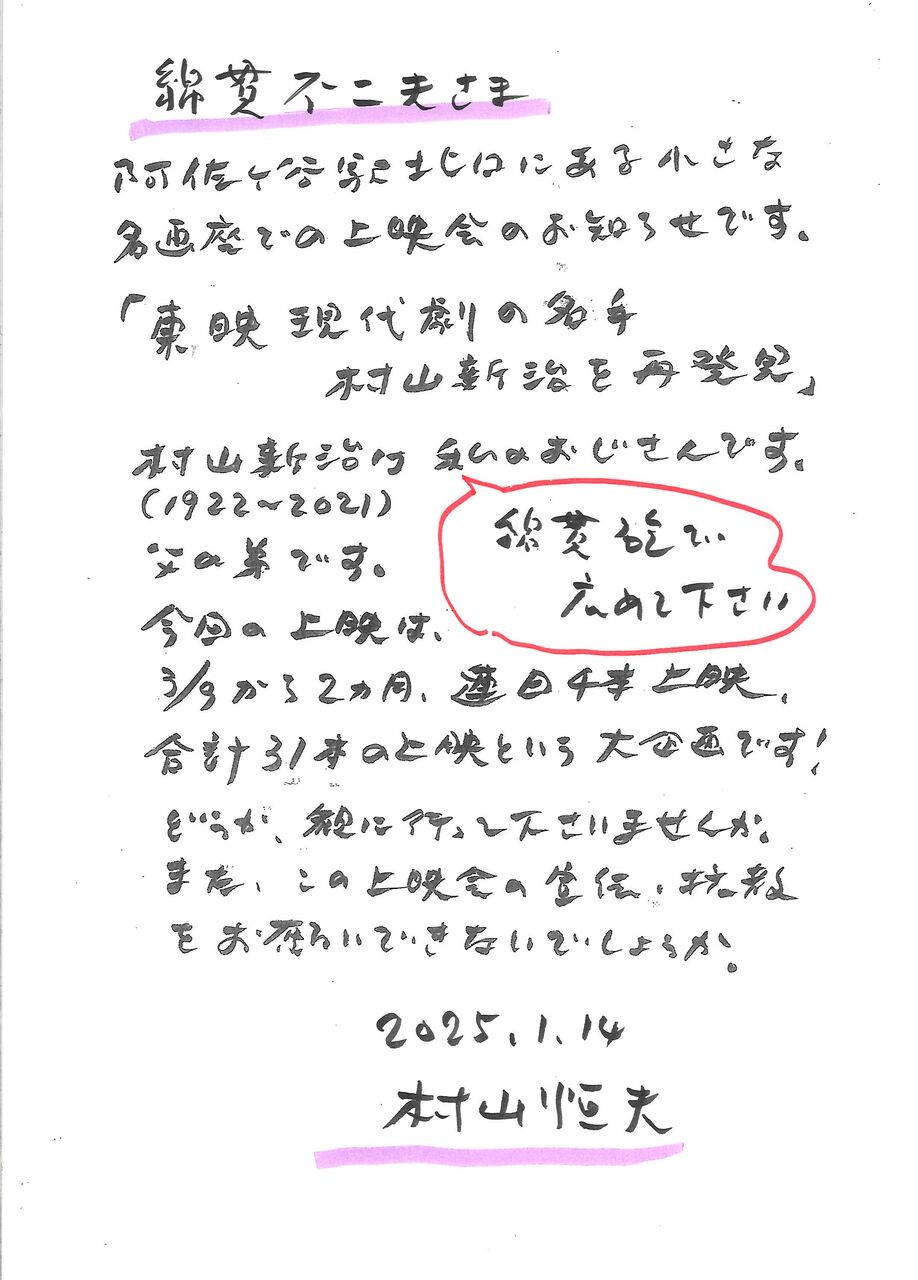 綿貫不二夫さま
阿佐ヶ谷駅北口にある小さな
名画座での上映会のお知らせです。
「東映現代劇の名手
村山新治を再発見」
村山新治は私のおじさんです。
(1922~2021)
父の弟です。
綿貫さんで
広めて下さい
今回の上映は、
3/9から2カ月、連日4本上映、
合計31本の上映という大企画です!
どうか、観に行って下さいませんか。
また、この上映会の宣伝・拡散
をお願いできないでしょうか。
2025.1.14
村山恒夫